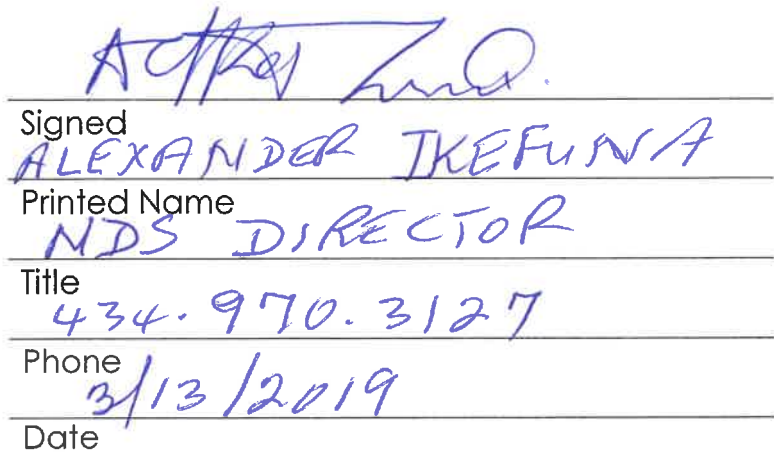 Signed
ALEXANDER IKEFUNA
Printed Name
NDS DIRECTOR
Title
434.970.3127
Phone
3/13/2019
Date